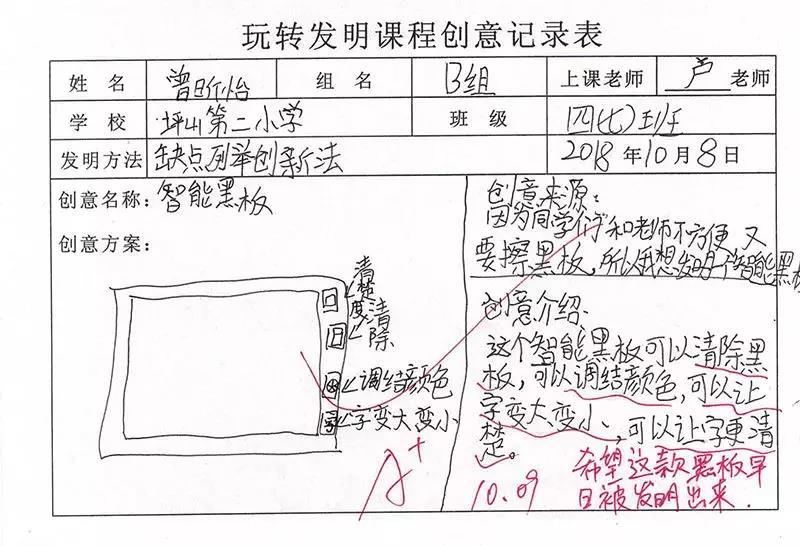 玩转发明课程创意记录表
姓名 曾昕怡 组名 B组 上课老师 卢老师
学校 坪山第二小学 班级 四(七)班
发明方法 缺点列举创新法 2018年10月8日
创意名称：智能黑板
创意方案：
清楚度
清除
调结颜色
字变大变小
创意来源：
因为同学们和老师不方便又
要擦黑板，所以我想发明个智能黑板
创意介绍：
这个智能黑板可以清除黑
板，可以调结颜色，可以让
字变大变小，可以让字更清
楚。
A+
10.09
希望这款黑板早
日被发明出来.